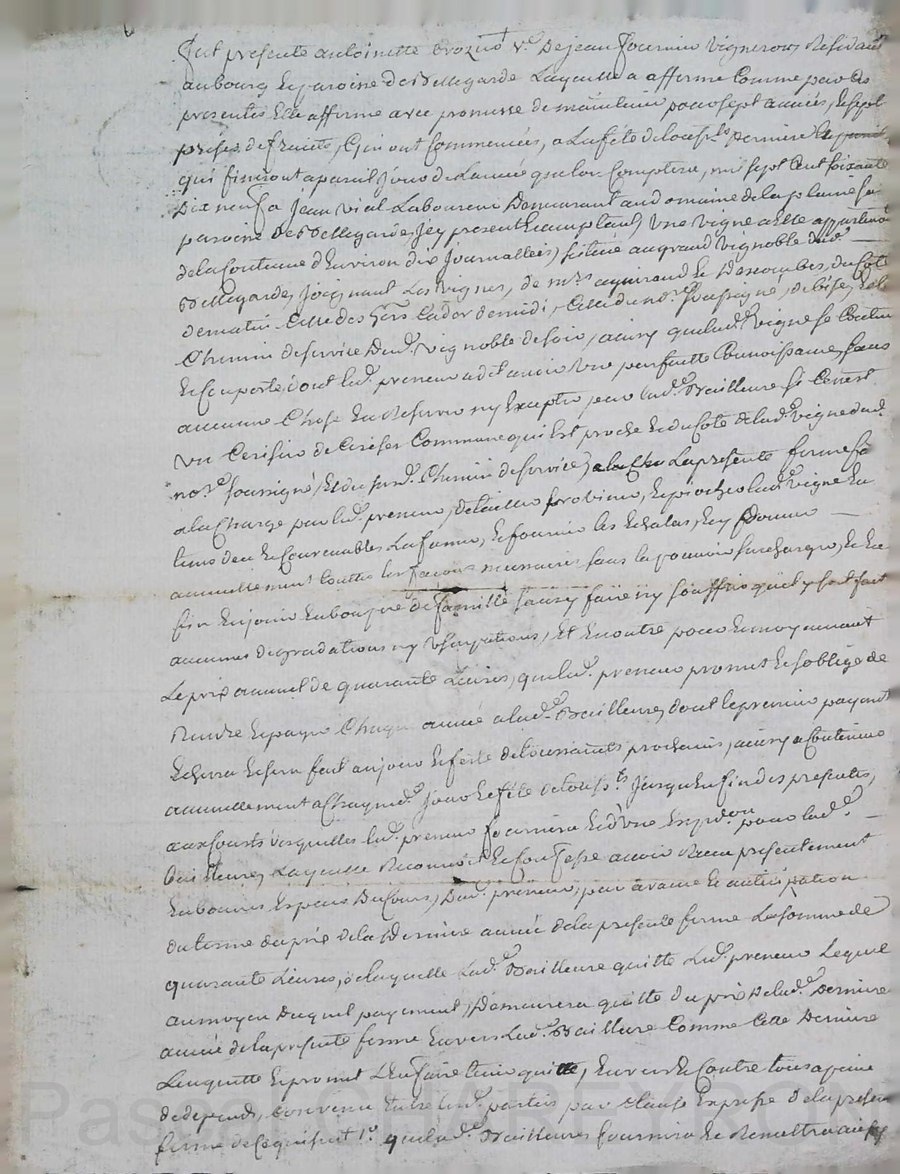 fut presente antoinette v.e De jean fournier vigneron Residant
au bourg & paroisse de Bellegarde Laquelle a affermé Comme par Ces
presentes Elle afferme avec promesse de maintenir pour sept années, & sept
prises de fruits, qui ont Commencées, a La fête de la touss.ts Derniere
qui finiront a pareil Jour de L'année que l'on Comptera, mil sept Cent soixante
Dix neuf a Jean vial Laboureur Demeurant au domaine de la plaine
paroisse de Bellegarde, Icy present & acceptant, Une vigne a Elle appartenant
de la Contenue d'Environ dix Journallées, sittuée au grand vignoble dud.
Bellegarde, Joignant Les vignes, de m.rs & Descombes, du Coté
de matin Celle des de midi, Celle du no.re soussigné, de bise, & le
Chemin de service Dud. vignoble de soir, ainsy que lad. vigne se Contient
& Comporte, dont led. preneur a dit avoir Une parfaitte Connoissance, sans
aucune Chose En Reserver ny Excepter par lad. Bailleure si Ce n'est
un Cerisier de Cerises Commune qui Est proche & du Coté de la d. vigne dud.
no.re soussigné, & du susd. Chemin de service, La presente ferme
a la Charge par led. preneur, de tailler provigner, & piocher lad. vigne En
tems deu & Convenables La fumer, & fournir les Echalas, & y Donner
annuellement touttes les façons necessaires sans la pouvoir surcharger, & En
fin En jouir En bon pere de famille sans y faire ny souffrir qu'il y soit fait
aucunes degradations ny Usurpations, Et En outre pour & moyennant
Le prix annuel de quarante Livres, que led. preneur promet & s'oblige de
Rendre & payer Chaque année a lad. Bailleure, dont le premier payement
Echerra & sera fait au jour & fête de toussaints prochains, ainsy a Continuer
annuellement a Chaque d. Jour & fête de touss.ts Jusqu'en fin des presentes,
aux Couts desquelles led. preneur fournira pour lad.
Bailleure, Laquelle Reconnoit & Confesse avoir Receu presentement
En bonnes Especes Du Cours, Dud. preneur, par avance & anticipation
du terme du prix de la Derniere année de la presente ferme La somme de
quarante Livres, de laquelle Lad. Bailleure quitte Led. preneur Lequel
au moyen Duquel payement, Demeurera quitte du prix De lad. Derniere
année de la presente ferme Envers Lad. Bailleure Comme Cette Derniere
L'en quitte & promet L'en faire tenir quitte, Envers & Contre tous a peine
de depends, Convenu Entre lesd. parties par Clause Expresse de la presente
ferme de Ce qui suit 1.o que lad. Bailleure fournira & Remettra aud.
Pascal